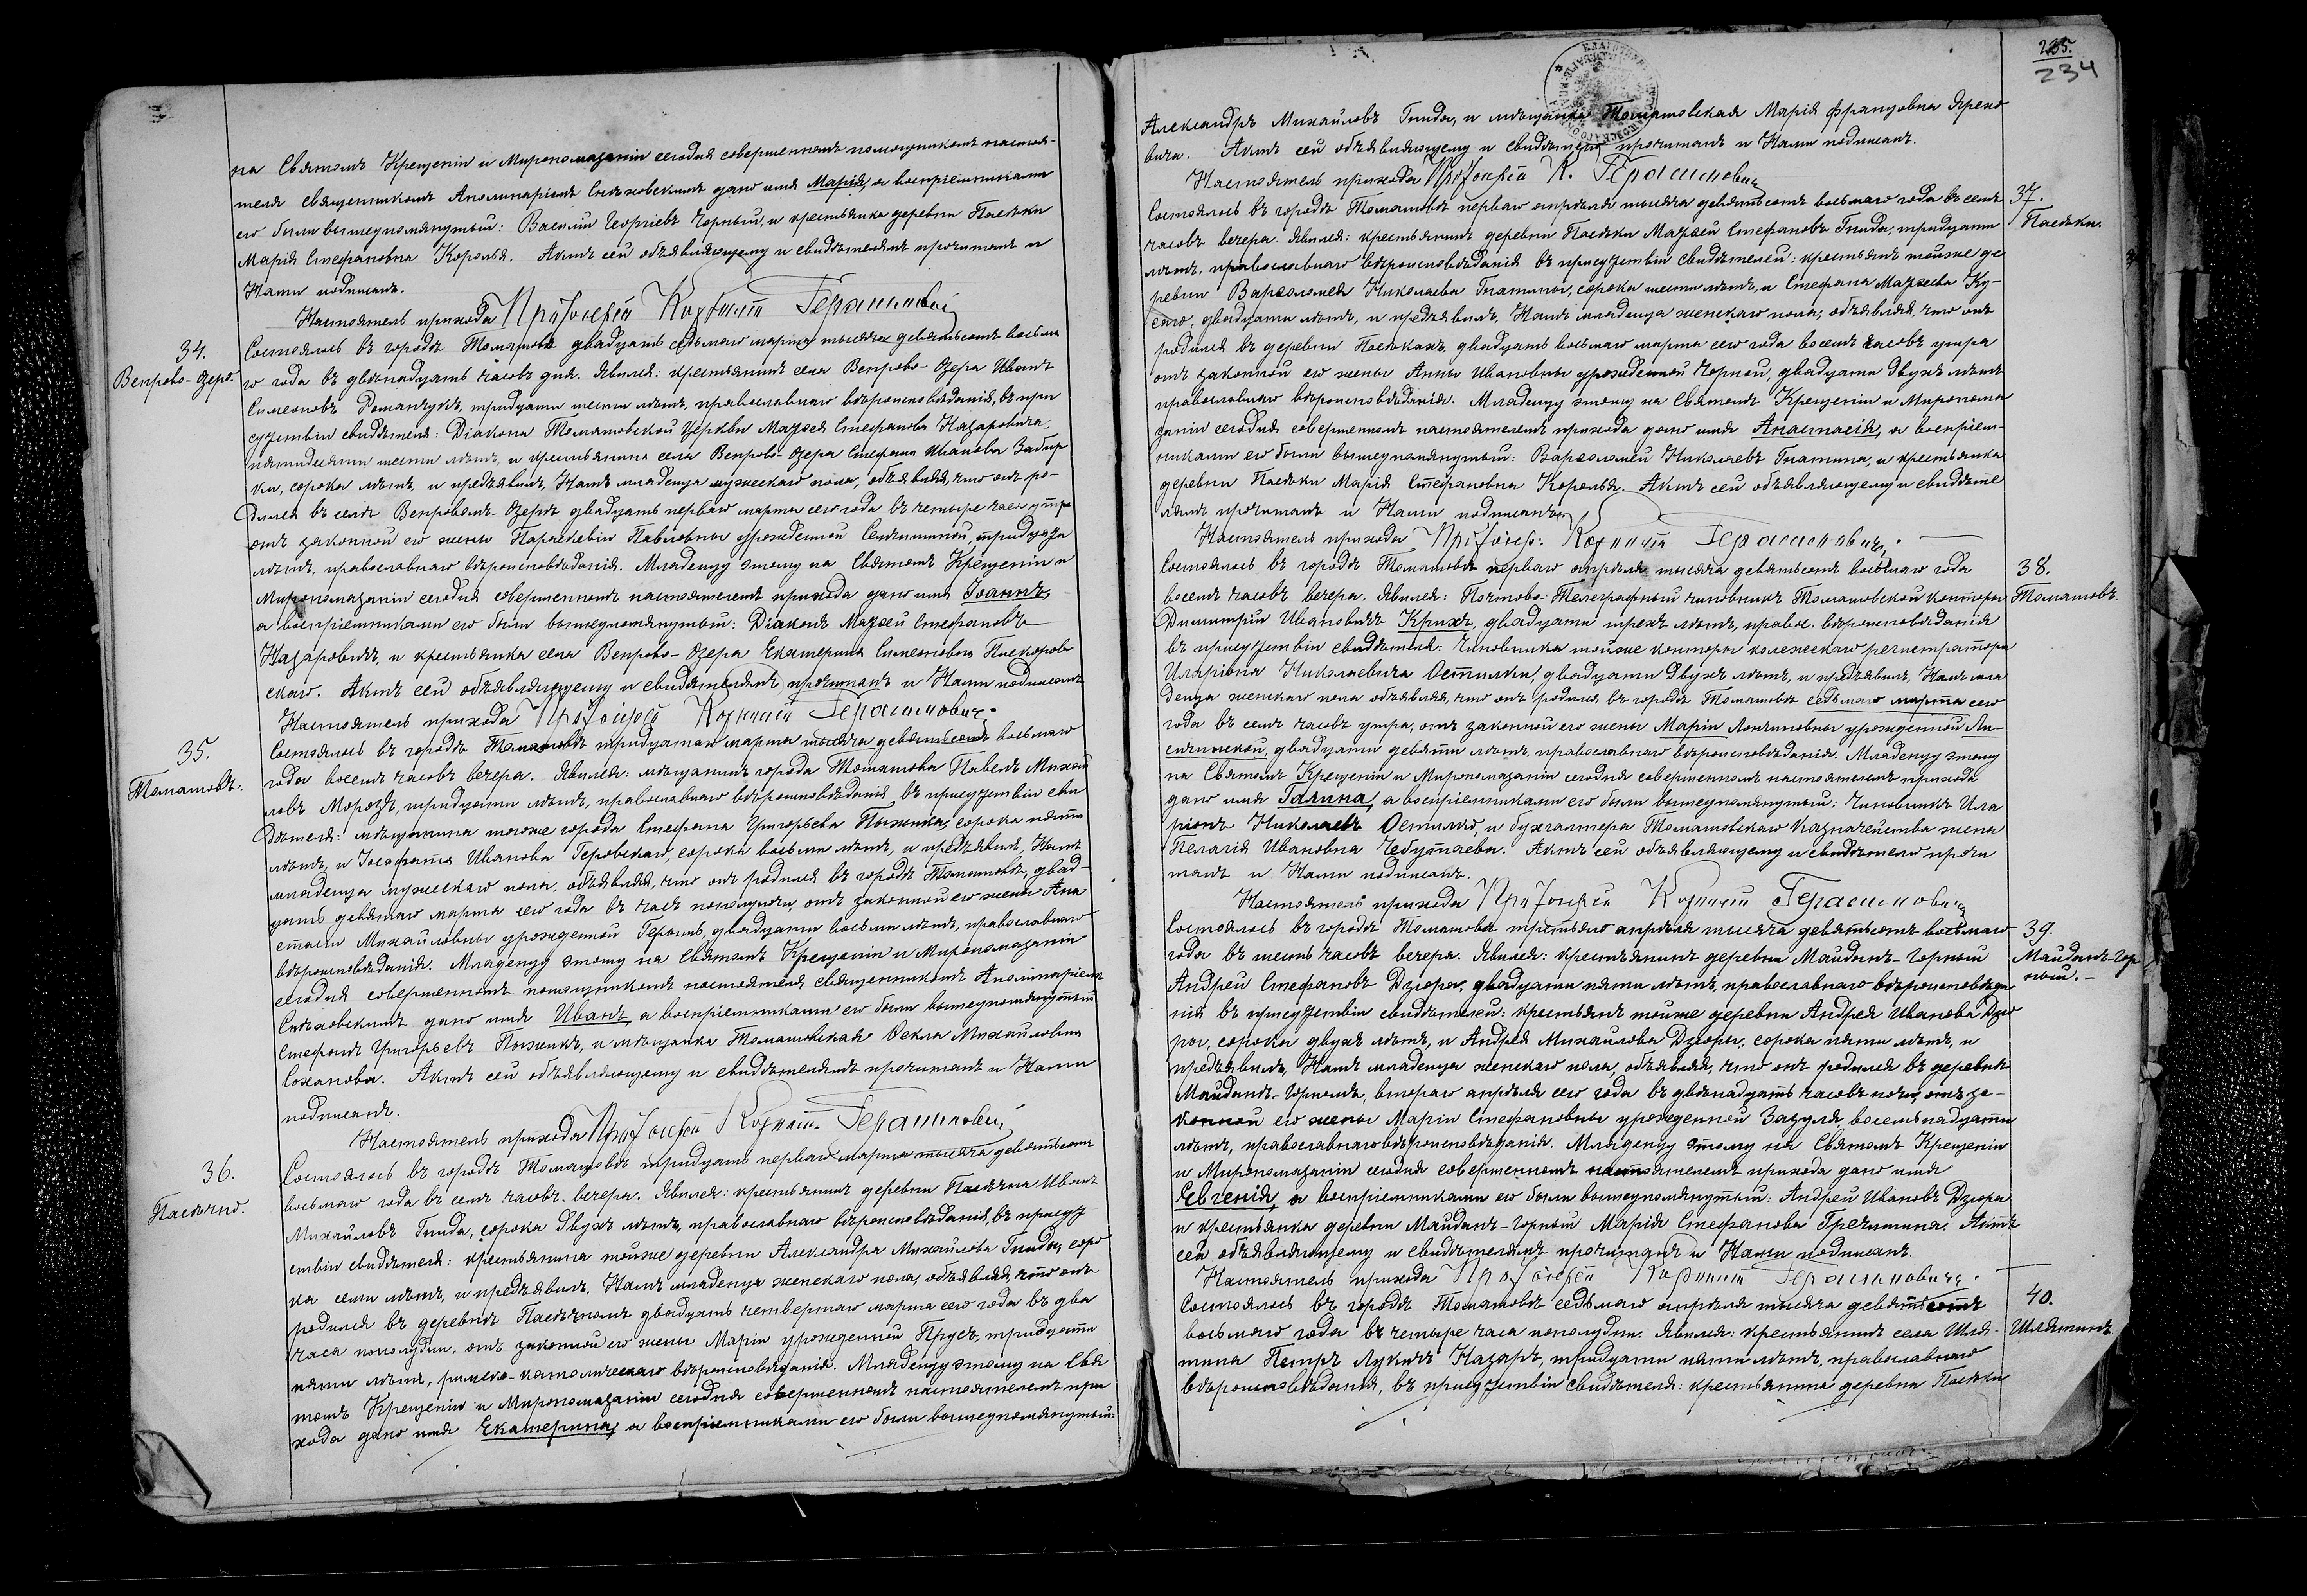 на Святомъ Крещеніи и Миропомазаніи сегодня совершенномъ помощникомъ настоя-
теля священникомъ Аполинаріемъ Снѣховскимъ дано имя Марія, а воспріемниками
его были вышеупомянутый: Василій Георгіевъ Чорный, и крестьянка деревни Пасѣки
Марія Стефановна Король. Актъ сей объявляющему и свидѣтелямъ прочитанъ и
Нами подписанъ.
Настоятель прихода Протоіерей Корнилій Герасимовичъ
34.
Вепрово-Озеро.
Состоялось въ городѣ Томашовѣ двадцать седьмаго марта тысяча девятьсотъ восьма
го года въ двѣнадцать часовъ дня. Явился: крестьянинъ села Вепрово-Озера Иванъ
Симеоновъ Романчукъ, тридцати шести лѣтъ, православнаго вѣроисповѣданія, въ при
сутствіи свидѣтеля: Діакона Томашовской Церкви Маѳея Стефанова Назаровича,
пятидесяти шести лѣтъ, и крестьянина села Вепрово-Озера Стефана Иванова
ки, сорока лѣтъ, и предъявилъ Намъ младенца мужескаго пола, объявляя, что онъ ро-
дился въ селѣ Вепровомъ-Озерѣ двадцать перваго марта сего года въ четыре часа утра
отъ законной его жены Параскевіи Павловны урожденной тридцати
лѣтъ, православнаго вѣроисповѣданія. Младенцу этому на Святомъ Крещеніи и
Миропомазаніи сегодня совершенномъ настоятелемъ прихода дано имя Іоаннъ,
а воспріемниками его были вышеупомянутый: Діаконъ Маѳей Стефановъ
Назаровичъ, и крестьянка села Вепрово-Озера Екатерина Симеоновна Пискоров
скаго. Актъ сей объявляющему и свидѣтелямъ прочитанъ и Нами подписанъ
Настоятель прихода Протоіерей Корнилій Герасимовичъ.
35.
Томашовъ.
Состоялось въ городѣ Томашовѣ тридцатаго марта тысяча девятьсотъ восьмаго
года восемь часовъ вечера. Явился: мѣщанинъ города Томашова Павелъ Михай
ловъ Морозъ, тридцати лѣтъ, православнаго вѣроисповѣданія въ присутствіи сви
дѣтеля: мѣщанина тогоже города Стефана Григорьева сорока пяти
лѣтъ, и Іосафата Иванова Геровскаго, сорока восьми лѣтъ, и предъявилъ, Намъ
младенца мужескаго пола, объявляя, что онъ родился въ городѣ Томашовѣ, двад-
цать девятаго марта сего года въ часъ пополуночи, отъ законной его жены Ана
стасіи Михайловны урожденной двадцати восьми лѣтъ, православнаго
вѣроисповѣданія. Младенцу этому на Святомъ Крещеніи и Миропомазаніи
сегодня совершенномъ помощникомъ настоятеля священникомъ Аполинаріемъ
Снѣховскимъ дано имя Иванъ, а воспріемниками его были вышеупомянутый
Стефанъ Григорьевъ и мѣщанка Томашовская Ѳекла Михайловна
Соханова. Актъ сей объявляющему и свидѣтелямъ прочитанъ и Нами
подписанъ.
Настоятель прихода Протоіерей Корнилій Герасимовичъ
36.
Пасѣчно.
Состоялось въ городѣ Томашовѣ тридцать перваго марта тысяча девятьсотъ
восьмаго года въ семь часовъ вечера. Явился: крестьянинъ деревни Пасѣчна Иванъ
Михайловъ Гнида, сорока двухъ лѣтъ, православнаго вѣроисповѣданія, въ присут
ствіи свидѣтеля: крестьянина тойже деревни Александра Михайлова Гниды, соро
ка семи лѣтъ, и предъявилъ, Намъ младенца женскаго пола, объявляя, что онъ
родился въ деревнѣ Пасѣчномъ двадцать четвертаго марта сего года въ два
часа пополудни, отъ законной его жены Маріи урожденной Прусъ, тридцати
пяти лѣтъ, римско-католическаго вѣроисповѣданія. Младенцу этому на Свя
томъ Крещеніи и Миропомазаніи сегодня совершенномъ настоятелемъ при
хода дано имя Екатерина, а воспріемниками его были вышеупомянутый:
235.
234
Александръ Михайловъ Гнида, и мѣщанка Томашовская Марія Францовна Яремо
вича. Актъ сей объявляющему и свидѣтелю прочитанъ и Нами подписанъ.
Настоятель прихода Протоіерей К. Герасимовичъ
37.
Пасѣки.
Состоялось въ городѣ Томашовѣ перваго апрѣля тысяча девятьсотъ восьмаго года въ семь
часовъ вечера. Явился: крестьянинъ деревни Пасѣки Маѳей Стефановъ Гнида, тридцати
лѣтъ, православнаго вѣроисповѣданія въ присутствіи свидѣтелей: крестьянъ тойже де
ревни Варѳоломея Николаева Гнатины, сорока шести лѣтъ, и Стефана Маѳеева Ку-
саго, двадцати лѣтъ, и предъявилъ, Намъ младенца женскаго пола, объявляя, что онъ
родился въ деревни Пасѣкахъ, двадцать восьмаго марта сего года восемь часовъ утра
отъ законной его жены Анны Ивановны урожденной Чорной, двадцати двухъ лѣтъ
православнаго вѣроисповѣданія. Младенцу этому на Святомъ Крещеніи и Миропома
заніи сегодня совершенномъ настоятелемъ прихода дано имя Анастасія, а воспріем-
никами его были вышеупомянутый: Варѳоломей Николаевъ Гнатина, и крестьянка
деревни Пасѣки Марія Стефановна Король. Актъ сей объявляющему и свидѣте
лямъ прочитанъ и Нами подписанъ.
Настоятель прихода Протоіер. Корнилій Герасимовичъ.
38.
Томашовъ.
Состоялось въ городѣ Томашовѣ перваго апрѣля тысяча девятьсотъ восьмаго года
восемь часовъ вечера. Явился: Почтово-Телеграфный чиновникъ Томашовской конторы
Димитрій Ивановичъ Крихъ, двадцати трехъ лѣтъ, правос. вѣроисповѣданія
въ присутствіи свидѣтеля: чиновника тойже конторы колежскаго регистратора
Иларіона Николаевича Остилки, двадцати двухъ лѣтъ, и предъявилъ, Намъ мла
денца женскаго пола объявляя, что онъ родился въ городѣ Томашовѣ седьмаго марта сего
года въ семь часовъ утра, отъ законной его жены Маріи Лонгиновны урожденной Ли-
двадцати девяти лѣтъ, православнаго вѣроисповѣданія. Младенцу этому
на Святомъ Крещеніи и Миропомазаніи сегодня совершенномъ настоятелемъ прихода
дано имя Галина, а воспріемниками его были вышеупомянутый: чиновникъ Ила
ріонъ Николаевъ Остилко, и бухгалтера Томашовскаго Казначейства жена
Пелагія Ивановна Чебутаева. Актъ сей объявляющему и свидѣтелю прочи
танъ и Нами подписанъ.
Настоятель прихода Протоіерей Корнилій Герасимовичъ
39.
Майданъ-Гор
ный.
Состоялось въ городѣ Томашовѣ третьяго апрѣля тысяча девятьсотъ восьмаго
года въ шесть часовъ вечера. Явился: крестьянинъ деревни Майданъ-Горный
Андрей Стефановъ Дзюра, двадцати пяти лѣтъ, православнаго вѣроисповѣда
нія въ присутствіи свидѣтелей: крестьянъ тойже деревни Андрея Иванова Дзю
ры, сорока двухъ лѣтъ, и Андрея Михайлова Дзюры, сорока пяти лѣтъ, и
предъявилъ, Намъ младенца женскаго пола, объявляя, что онъ родился въ деревнѣ
Майданѣ-Горномъ, втораго апрѣля сего года въ двѣнадцать часовъ ночи, отъ за-
конной его жены Маріи Стефановны урожденной Зазуля, восемьнадцати
лѣтъ, православнаго вѣроисповѣданія. Младенцу этому на Святомъ Крещеніи
и Миропомазаніи сегодня совершенномъ настоятелемъ прихода дано имя
Евгенія, а воспріемниками его были вышеупомянутый: Андрей Ивановъ Дзюра
и крестьянка деревни Майданъ-Горный Марія Стефанова Гречишина. Актъ
сей объявляющему и свидѣтелямъ прочитанъ и Нами подписанъ.
Настоятель прихода Протоіерей Корнилій Герасимовичъ.
40.
Шлятинъ.
Состоялось въ городѣ Томашовѣ седьмаго апрѣля тысяча девятьсотъ
восьмаго года въ четыре часа пополудни. Явился: крестьянинъ села Шля-
тина Петръ Лукичъ Назаръ, тридцати пяти лѣтъ, православнаго
вѣроисповѣданія, въ присутствіи свидѣтеля: крестьянина деревни Пасѣки